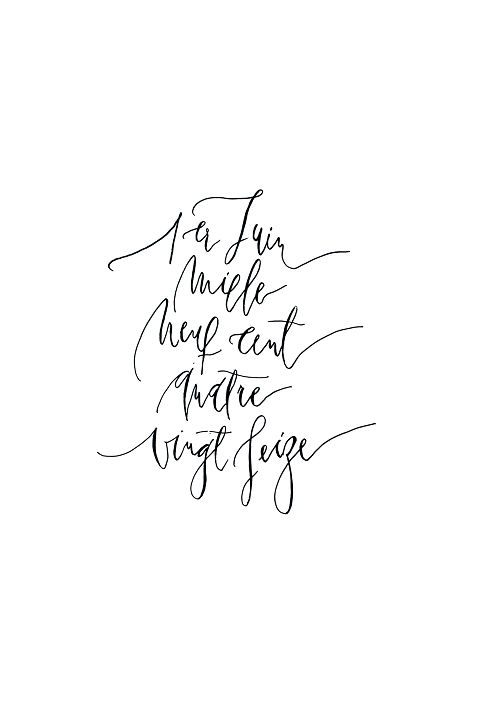 1er Juin
mille
neuf cent
quatre
vingt seize